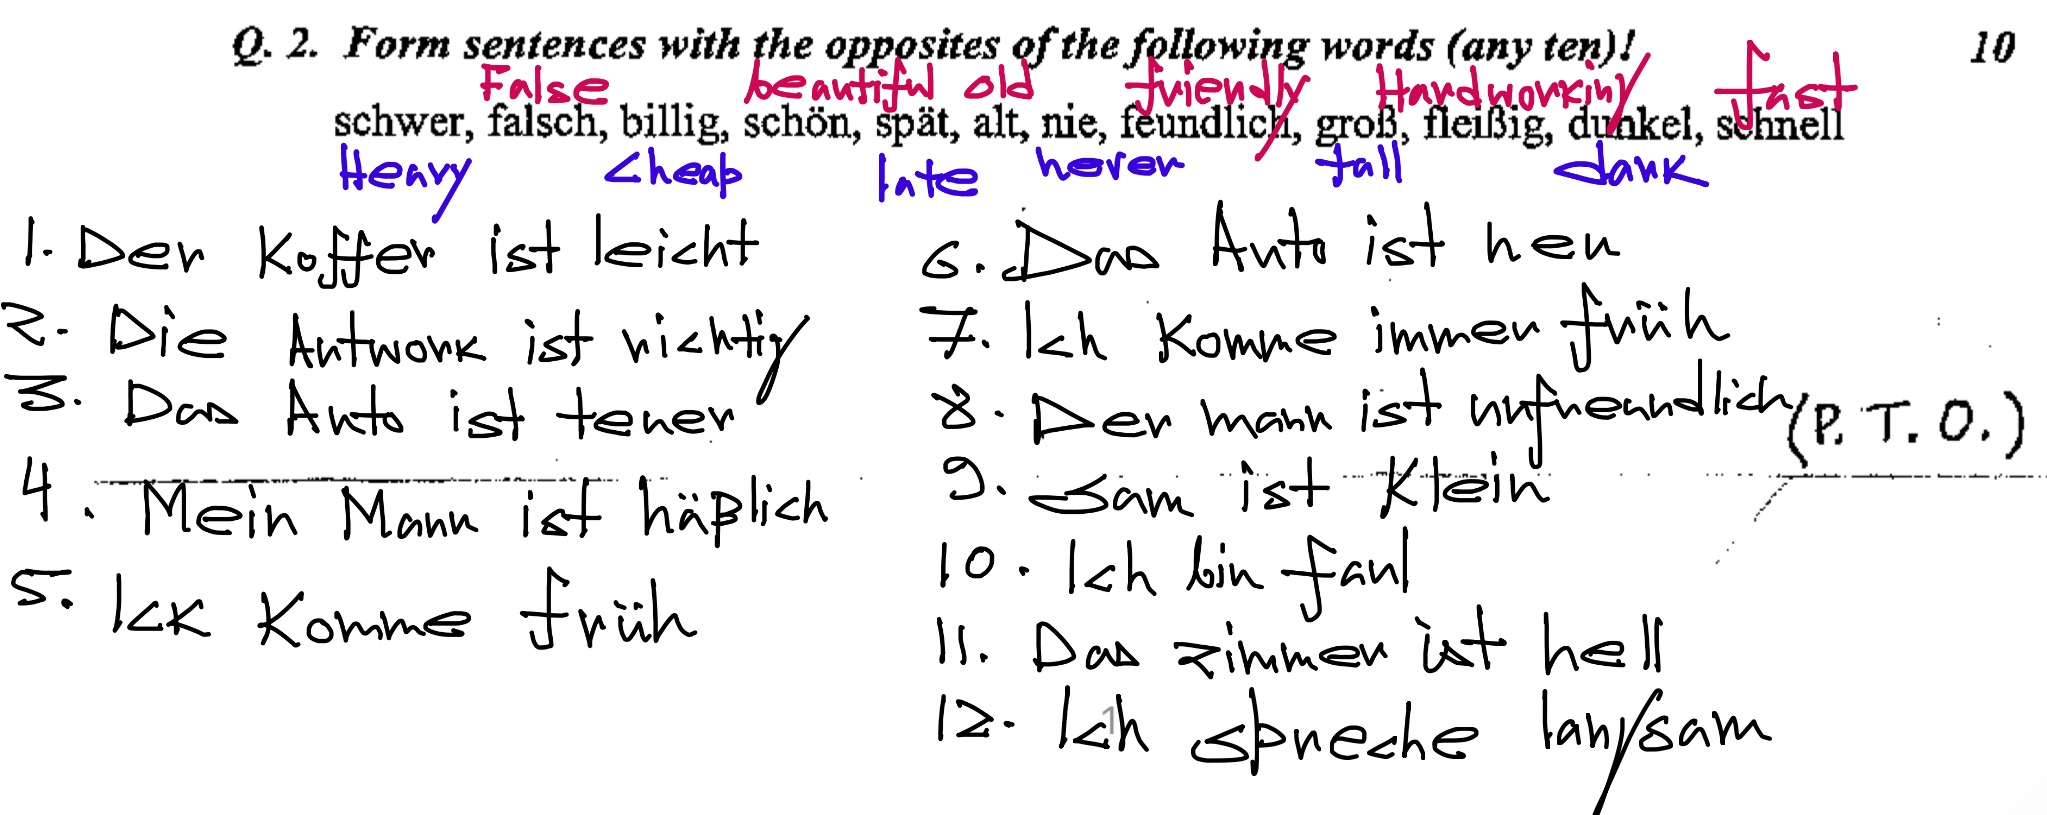 Q. 2. Form sentences with the opposites of the following words (any ten)! 10
False beautiful old friendly Hardworking fast
schwer, falsch, billig, schön, spät, alt, nie, feundlich, groß, fleißig, dunkel, schnell
Heavy cheap late never tall dark
1. Der Koffer ist leicht
2. Die Antwork ist richtig
3. Das Auto ist tener
4. Mein Mann ist häßlich
5. Ick komme früh
6. Das Auto ist neu
7. Ich komme immer früh
8. Der mann ist unfreundlich
(P. T. O.)
9. Sam ist Klein
10. Ich bin faul
11. Das zimmer ist hell
12. Ich spreche langsam
1